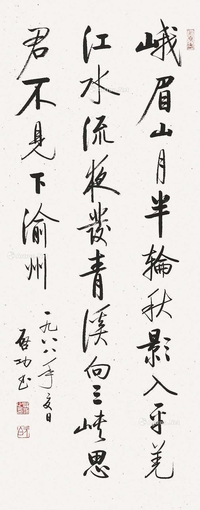 峨眉山月半轮秋影入平羌
江水流夜发青溪向三峡思
君不见下渝州
一九八八年夏日
启功书